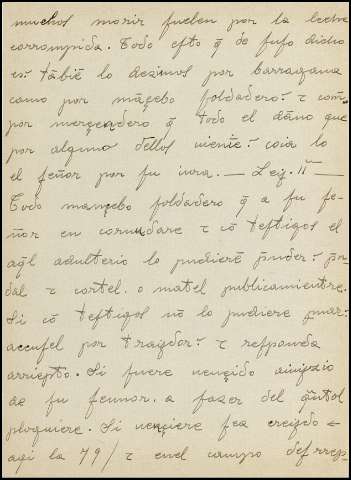 muchos morir fueben por la leche
corrompida. Todo esto q̃ de suso dicho
es: tãbiẽ lo dezimos por barragana
como por mãçebo soldadero: τ com̃
por merçenadero q̃ todo el dãno que
por alguno dellos viniere: coia lo
el señor por su iura. — Ley. II —
Todo mançebo soldadero q̃ a su se-
ñor en cornudare τ cõ testigos el
aq̃l adulterio lo pudierẽ p̃nder: p̃n-
dal τ cortel. o matel publicamientre.
Si cõ testigos nõ lo pudiere p̃uar:
accusel por traydor: τ responda
arriepto. Si fuere vençido iuiizio
de su sennor. a fazer del q̃ntol
ploguiere. Si vençiere sea creydo
aqi la 79/ τ enel campo desrrep